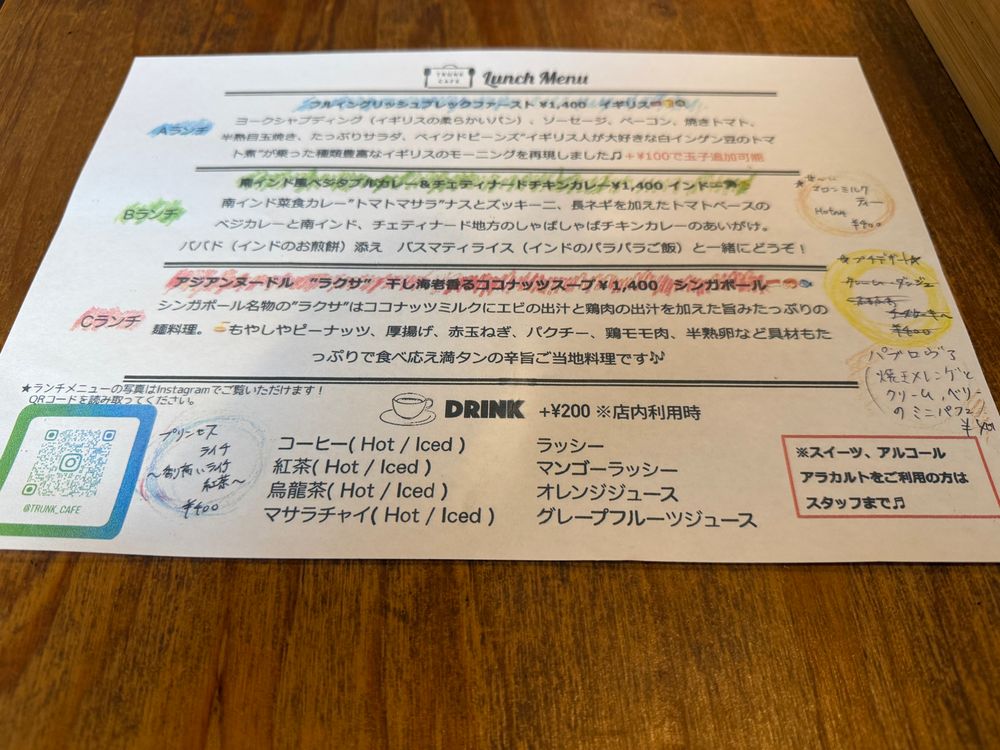 TRUNK CAFE Lunch Menu
フルイングリッシュブレックファースト ¥1,400 イギリス
Aランチ
ヨークシャプディング（イギリスの柔らかいパン）、ソーセージ、ベーコン、焼きトマト、
半熟目玉焼き、たっぷりサラダ、ベイクドビーンズ"イギリス人が大好きな白インゲン豆のトマ
ト煮"が乗った種類豊富なイギリスのモーニングを再現しました♫+¥100で玉子追加可能
南インド風ベジタブルカレー＆チェティナードチキンカレー¥1,400 インド
Bランチ
南インド菜食カレー"トマトマサラ"ナスとズッキーニ、長ネギを加えたトマトベースの
ベジカレーと南インド、チェティナード地方のしゃばしゃばチキンカレーのあいがけ。
パパド（インドのお煎餅）添え バスマティライス（インドのパラパラご飯）と一緒にどうぞ！
ミルク
ティー
¥400
アジアンヌードル "ラクサ" 干し海老香るココナッツスープ¥1,400 シンガポール
Cランチ
シンガポール名物の"ラクサ"はココナッツミルクにエビの出汁と鶏肉の出汁を加えた旨みたっぷりの
麺料理。もやしやピーナッツ、厚揚げ、赤玉ねぎ、パクチー、鶏モモ肉、半熟卵など具材もた
っぷりで食べ応え満タンの辛旨ご当地料理です🎶
★プチデザート★
¥400
パブロヴァ
焼きメレンゲと
クリーム、ベリー
のミニパフェ
★ランチメニューの写真はInstagramでご覧いただけます！
QRコードを読み取ってください。
@TRUNK_CAFE
プリンセス
ライチ
紅茶〜
¥400
DRINK +¥200 ※店内利用時
コーヒー( Hot / Iced )
紅茶( Hot / Iced )
烏龍茶( Hot / Iced )
マサラチャイ( Hot / Iced )
ラッシー
マンゴーラッシー
オレンジジュース
グレープフルーツジュース
※スイーツ、アルコール
アラカルトをご利用の方は
スタッフまで♫